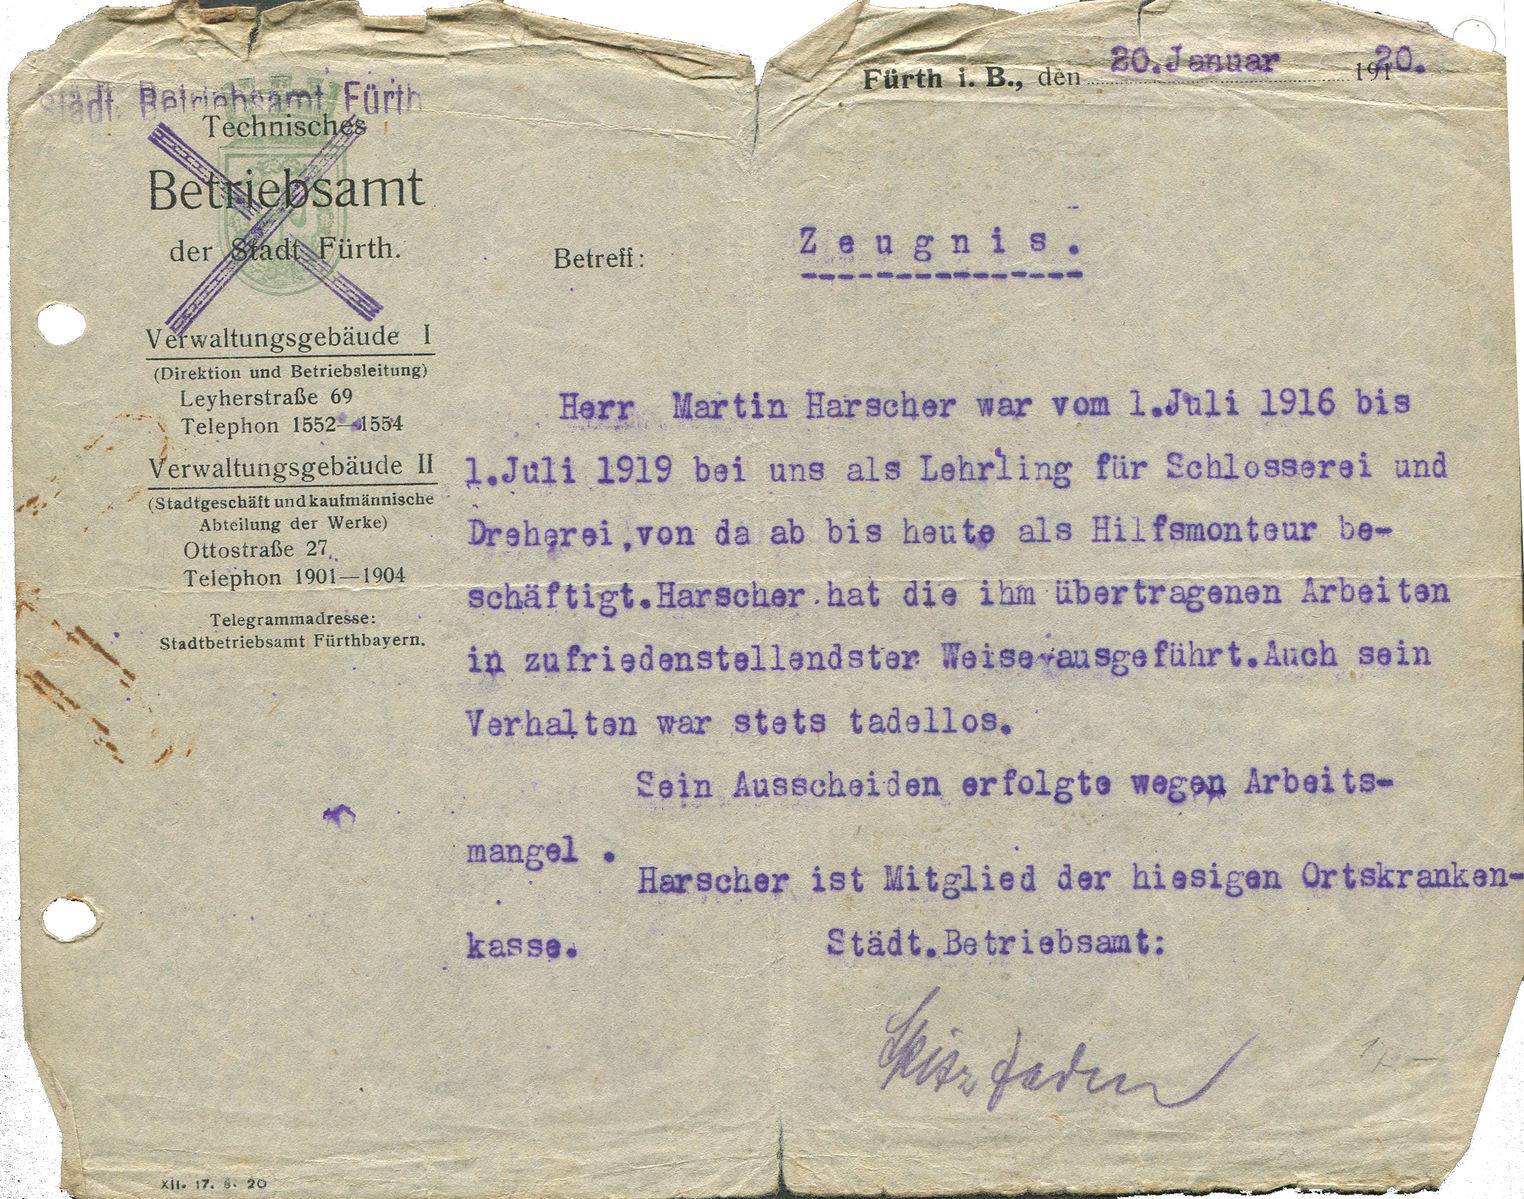 Städt. Betriebsamt Fürth
Technisches
Betriebsamt
der Stadt Fürth.
Verwaltungsgebäude I
(Direktion und Betriebsleitung)
Leyherstraße 69
Telephon 1552—1554
Verwaltungsgebäude II
(Stadtgeschäft und kaufmännische
Abteilung der Werke)
Ottostraße 27.
Telephon 1901—1904
Telegrammadresse:
Stadtbetriebsamt Fürthbayern.
Fürth i. B., den 20.Januar 1920.
Betreff: Zeugnis.
Herr Martin Harscher war vom 1.Juli 1916 bis
1.Juli 1919 bei uns als Lehrling für Schlosserei und
Dreherei,von da ab bis heute als Hilfsmonteur be-
schäftigt.Harscher hat die ihm übertragenen Arbeiten
in zufriedenstellendster Weise ausgeführt.Auch sein
Verhalten war stets tadellos.
Sein Ausscheiden erfolgte wegen Arbeits-
mangel .
Harscher ist Mitglied der hiesigen Ortskranken-
kasse.
Städt.Betriebsamt:
Spitzfaden
XII. 17. 8. 20